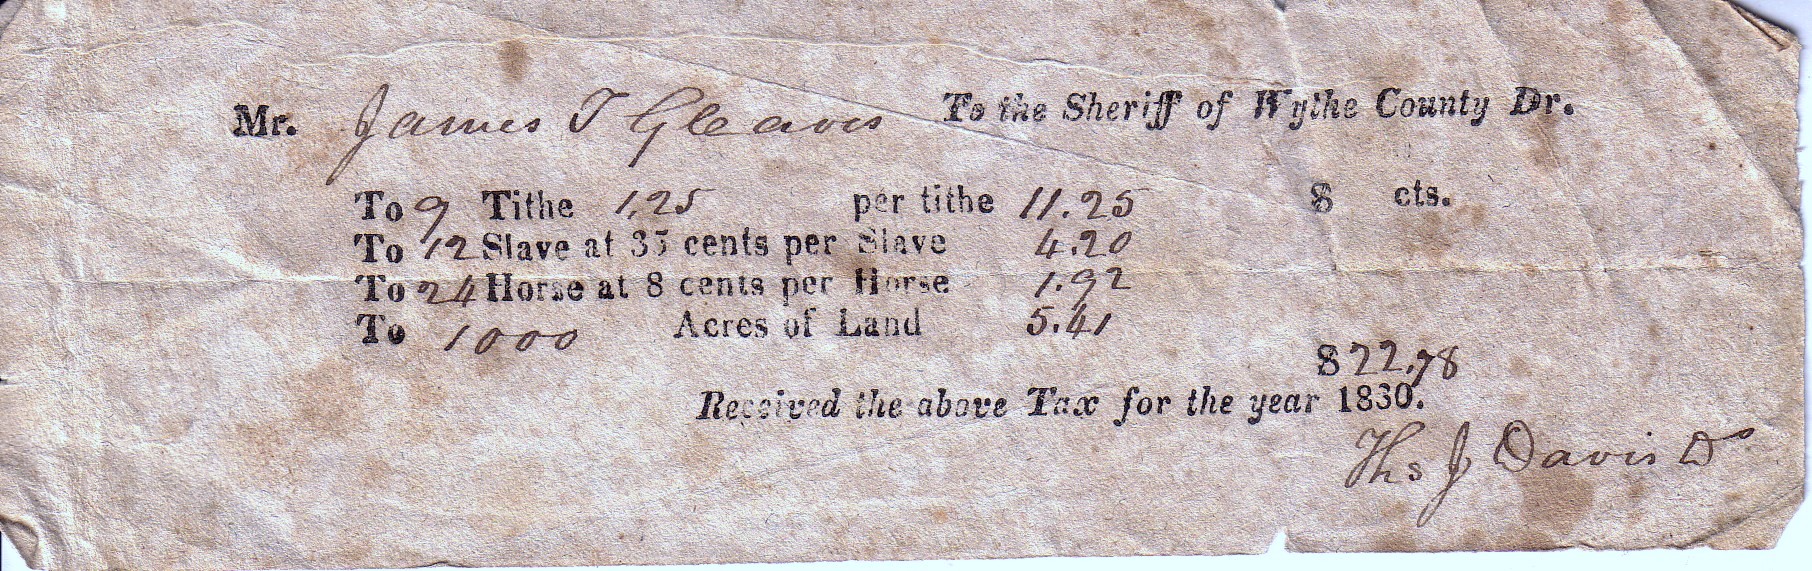 Mr. James T Gleaves To the Sheriff of Wythe County Dr.
To 9 Tithe 1.25 per tithe 11.25 $ cts.
To 12 Slave at 35 cents per Slave 4.20
To 24 Horse at 8 cents per Horse 1.92
To 1000 Acres of Land 5.41
$ 22.78
Received the above Tax for the year 1830.
Ths J Davis D